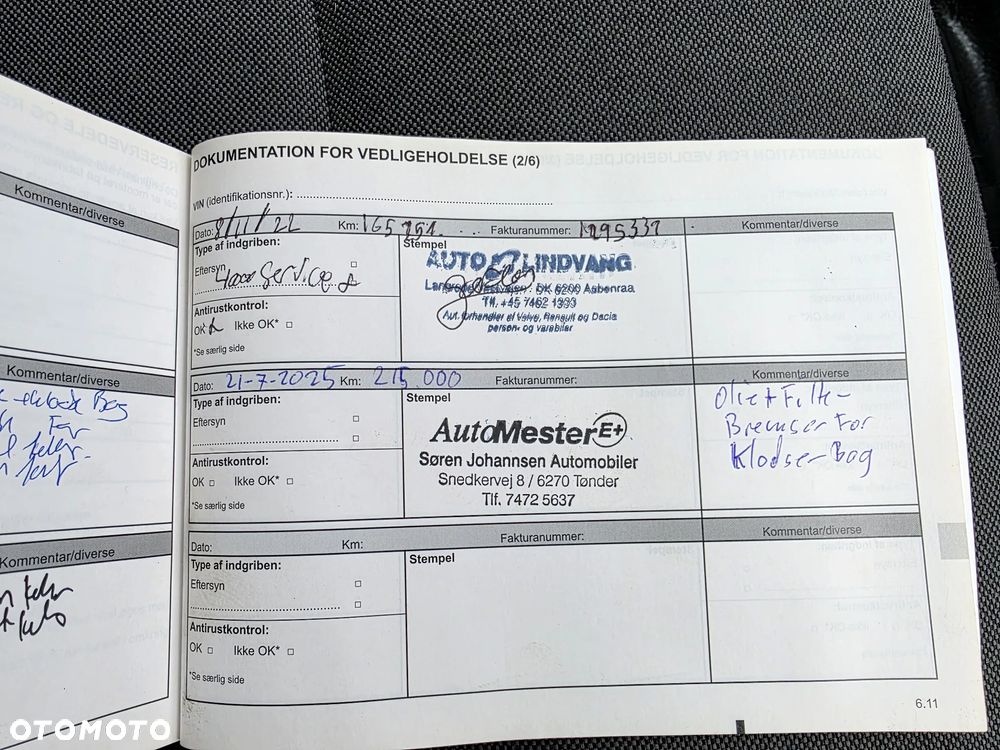 RESERVEDELE OG RE
Kommentar/diverse
Kommentar/diverse
Bag
For
Kommentar/diverse
DOKUMENTATION FOR VEDLIGEHOLDELSE (2/6)
VIN (identifikationsnr.):
Dato: 8/11/22 Km: 165 751 Fakturanummer: Kommentar/diverse
Type af indgriben:
Eftersyn
Service
Antirustkontrol:
OK Ikke OK*
*Se særlig side
Stempel
AUTO LINDVANG
DK 6200 Aabenraa
Tlf. +45 7462 1333
Aut. forhandler af Volvo, Renault og Dacia
person- og varebiler
Dato: 21-7-2025 Km: 215.000 Fakturanummer: Kommentar/diverse
Type af indgriben:
Eftersyn
Antirustkontrol:
OK Ikke OK*
*Se særlig side
Stempel
AutoMester E+
Søren Johannsen Automobiler
Snedkervej 8 / 6270 Tønder
Tlf. 7472 5637
Olie + Filte-
Bremser For
Klodser Bag
Dato: Km: Fakturanummer: Kommentar/diverse
Type af indgriben:
Eftersyn
Antirustkontrol:
OK Ikke OK*
*Se særlig side
Stempel
6.11
OTOMOTO